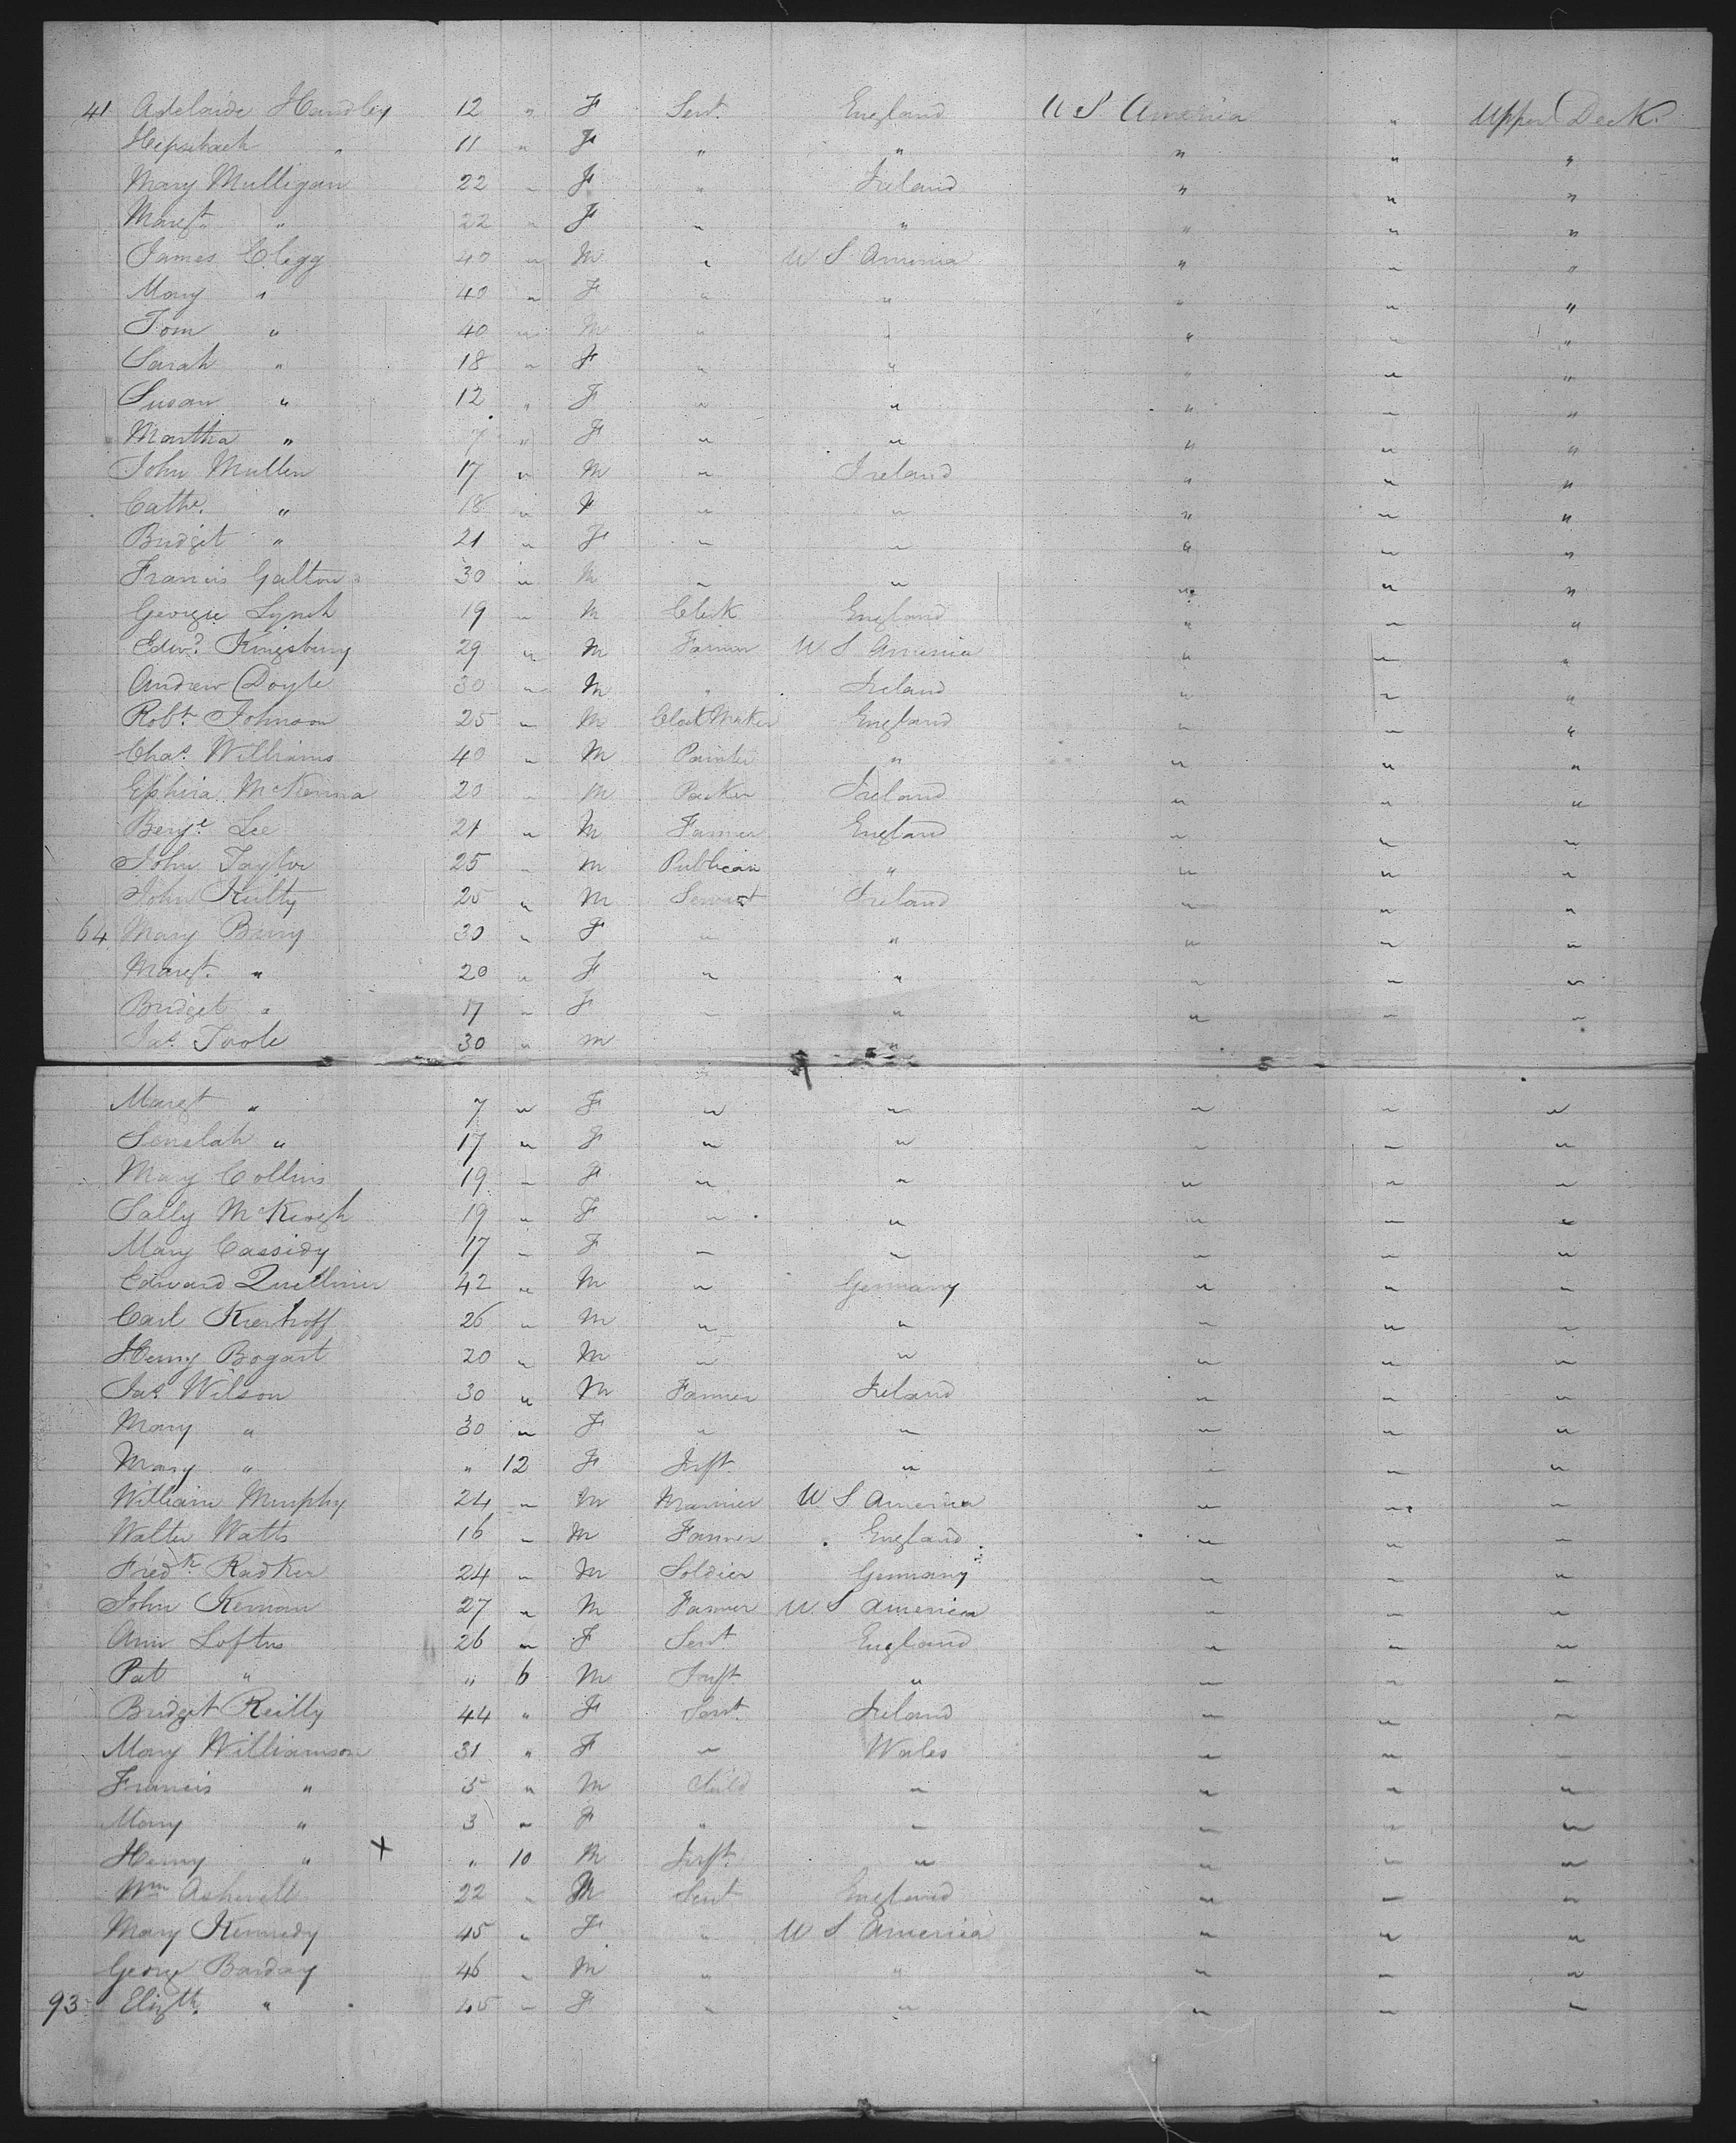 41 Adelaide Handley 12 " F Sevt. England U S America " Upper Deck.
Hepzebach " 11 " F " " " " "
Mary Mulligan 22 " F " Ireland " " "
Margt. " 22 " F " " " " "
James Clegg 40 " M " U S America " " "
Mary " 40 " F " " " " "
Tom " 40 " M " " " " "
Sarah " 18 " F " " " " "
Susan " 12 " F " " " " "
Martha " 7 " F " " " " "
John Mullen 17 " M " Ireland " " "
Cathe. " 18 " F " " " " "
Bridget " 21 " F " " " " "
Francis Galton 30 " M " " " " "
George Lynch 19 " M Clerk England " " "
Edwd. Kingsbury 29 " M Farmer U S America " " "
Andrew Doyle 30 " M " Ireland " " "
Robt. Johnson 25 " M Clock Maker England " " "
Chas. Williams 40 " M Painter " " " "
Ephira McKenna 20 " M Packer Ireland " " "
Benje. Lee 21 " M Farmer England " " "
John Taylor 25 " M Publican " " " "
John Kulty 25 " M Servant Ireland " " "
64 Mary Barry 30 " F " " " " "
Margt. " 20 " F " " " " "
Bridget " 17 " F " " " " "
Jas. Toole 30 " M "
Margt " 7 " F " " " " "
" 17 " F " " " " "
Mary Collins 19 " F " " " " "
Sally McKeogh 19 " F " " " " "
Mary Cassidy 17 " F " " " " "
Edward 42 " M " Germany " " "
Carl Kierhoff 26 " M " " " " "
Henry Bogart 20 " M " " " " "
Jas. Wilson 30 " M Farmer Ireland " " "
Mary " 30 " F " " " " "
Mary " " 12 F Inft. " " " "
William Murphy 24 " M Marnier U. S America " " "
Walter Watts 16 " M Farmer England " " "
Fredk. Radker 24 " M Soldier Germany " " "
John Kernan 27 " M Farmer U. S America " " "
Ann Loftus 26 " F Sevt England " " "
Pat " " 6 M Inft. " " " "
Bridget Reilly 44 " F Sevt. Ireland " " "
Mary Williamson 31 " F " Wales " " "
Francis " 5 " M Child " " " "
Mary " 3 " F " " " " "
Henry " x " 10 M Inft. " " " "
Wm Ashwell 22 " M Sevt England " " "
Mary Kennedy 45 " F " U S America " " "
George Barday 46 " M " " " " "
93 Elizth. " 45 " F " " " " "